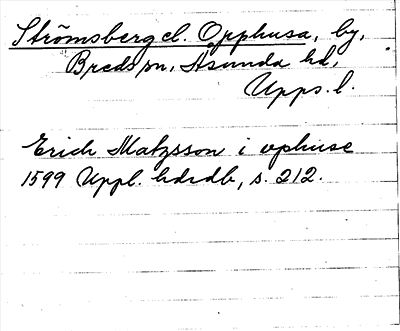 Strömsberg el. Opphusa, by,
Breds sn, Åsunda hd,
Upps. l.
Erich Matzsson i ophuse
1599 Uppl. hdrdb, s. 212.